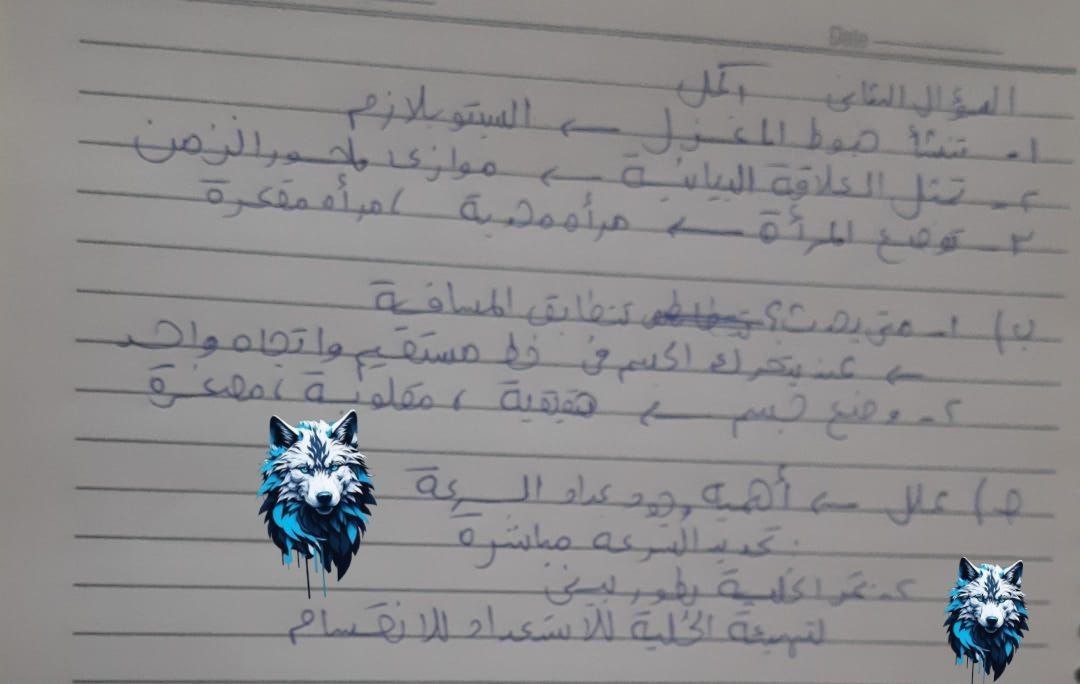 Date
السؤال الثاني أكمل
١- تنشأ خيوط المغزل ← السيتوبلازم
٢- تمثل العلاقة البيانية ← موازى لمحور الزمن
٣- توضع المرأة ← مرأه محدبة ، مرأه مقعرة
ب) ١- متى يحدث؟ تتطابق المسافة
← عند يتحرك الجسم في خط مستقيم واتجاه واحد
٢- وضع جسم ← حقيقية ، مقلوبة ، مصغرة
ج) علل ← أهمية وجود عداد السرعة
تحديد السرعه مباشرة
٢- تمر الخلية بطور بيني
لتهيئة الخلية للاستعداد للانقسام